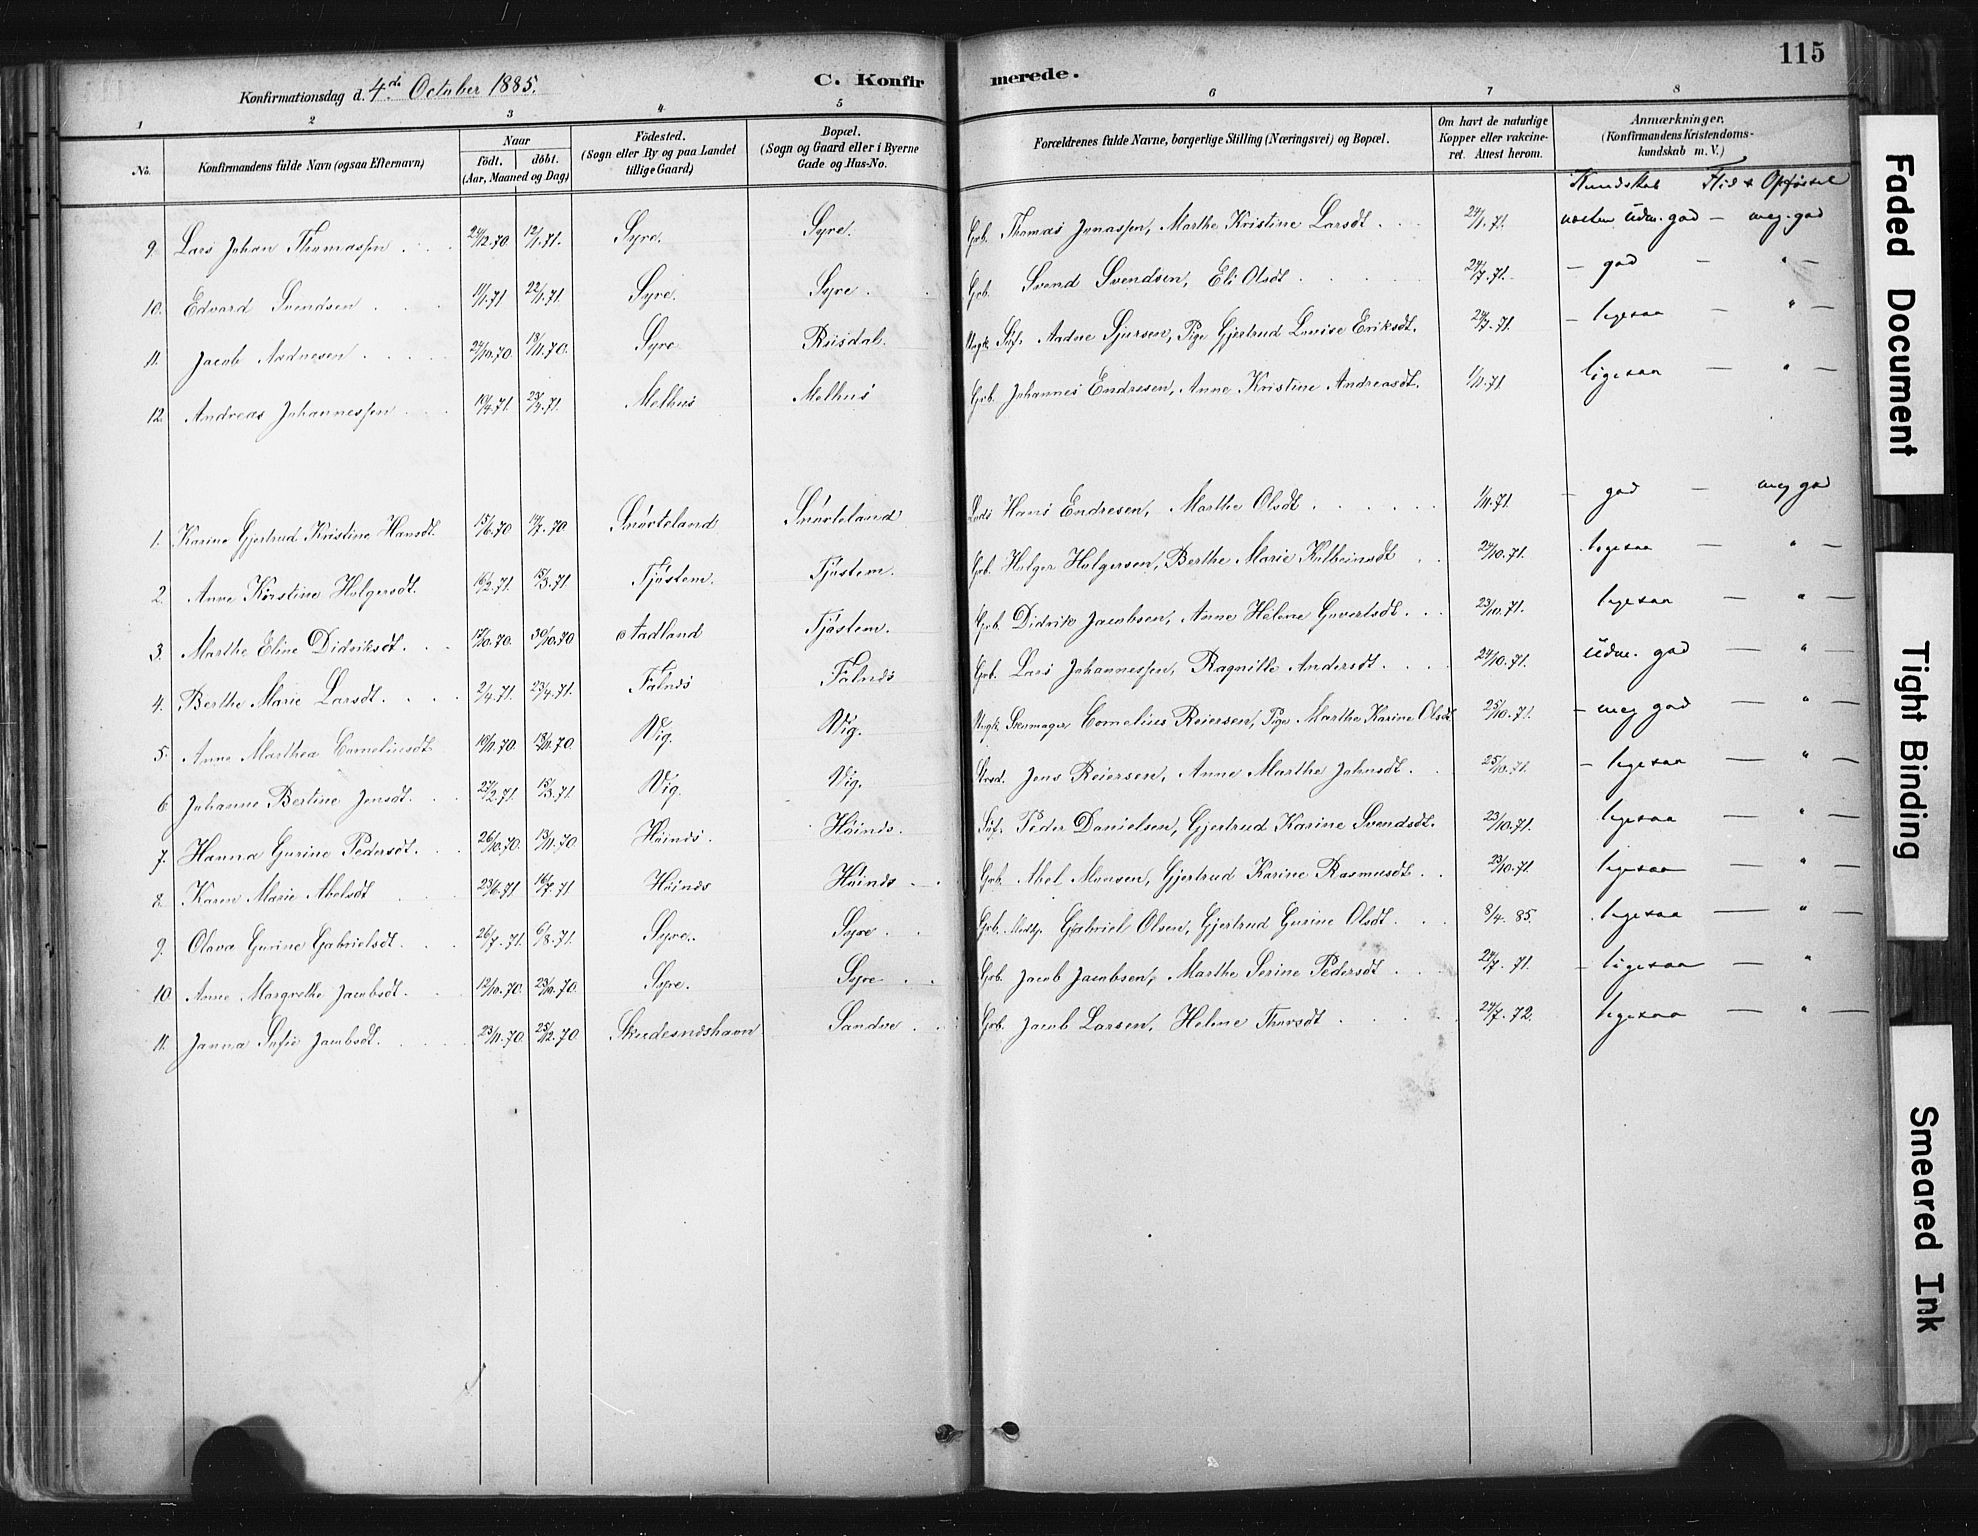 115
Konfirmationsdag d. 4de October 1885.
C. Konfirmerede.
1 2 3 4 5 6 7 8
No.
Konfirmandens fulde Navn (ogsaa Efternavn)
Naar
födt. döbt.
(Aar, Maaned og Dag)
Födested.
(Sogn eller By og paa Landet
tillige Gaard)
Bopæl.
(Sogn og Gaard eller i Byerne
Gade og Hus-No.
Forældrenes fulde Navne, borgerlige Stilling (Næringsvei) og Bopæl.
Om havt de naturlige
Kopper eller vakcine-
ret. Attest herom.
Anmærkninger.
(Konfirmandens Kristendoms-
kundskab m. V.)
Kundskab Flid & Opförsel
9. Lars Johan Thomassen 24/12.70 12/1.71. Syre. Syre. Gb. Thomas Jonassen, Marthe Kristine Larsdt. 24/1.71. næsten üdm. god — meg. god
10. Edvard Svendsen 11/1.71 22/1.71. Syre. Syre. Gb. Svend Svendsen, Eli Olsdt 24/7.71. — god — " —
11. Jacob Aadnesen 24/10.70 13/11.70. Syre Risdal. Ungk. Söf. Aadne Sjursen, Pige Gjertrud Lovise Eriksdt. 24/7.71. — ligesaa — " —
12. Andreas Johannessen 10/4.71. 23/4.71. Melhus Melhus Gb. Johannes Endresen, Anne Kristine Andreasdt. 1/11.71 ligesaa — " —
1. Karine Gjertrud Kristine Hansdt. 15/6.70 17/7.70. Snörteland Snörteland Lods Hans Endresen, Marthe Olsdt 1/11.71. — god — meg god
2. Anne Kirstine Holgersdt. 16/2.71. 15/3.71 Tjöstem. Tjöstem. Gb. Holger Holgersen, Berthe Marie 24/10.71. ligesaa — " —
3. Marthe Eline Didriksdt. 17/10.70. 30/10.70 Aadland Tjöstem. Gb. Didrik Jacobsen, Anne Helene Govertsdt. 23/10.71. ligesaa — " —
4. Berthe Marie Larsdt. 2/4.71. 23/4.71. Falnes Falnes Gb. Lars Johannessen, Ragnille Andersdt. 24/10.71. üdm. god — " —
5. Anne Marthea Corneliusdt 10/11.70. 13/11.70. Vig. Vig. Ungk. Skomager Cornelius Reiersen, Pige Marthe Karine Olsdt 25/10.71. — meg god — " —
6 Johanne Bertine Jensdt. 27/2.71. 15/3.71. Vig. Vig. Jens Reiersen, Anne Marthe Johnsdt. 25/10.71. — ligesaa — " —
7. Hanna Gurine Pedersdt. 26/10.70. 13/11.70 Höines. Höines. Söf. Peder Danielsen, Gjertrud Karine Svendsdt. 23/10.71. ligesaa — " —
8. Karen Marie Abelsdt 23/6.71 16/7.71 Höines Höines Gb. Abel Monsen, Gjertrud Karine Rasmusdt. 23/10.71. ligesaa — " —
9. Olava Gurine Gabrielsdt. 26/7.71. 6/8.71. Syre. Syre Gb. Gabriel Olsen, Gjertrud Gurine Olsdt. 8/4.85. ligesaa — " —
10. Anne Margrethe Jacobsdt. 12/10.70. 23/10.70. Syre. Syre Gb. Jacob Jacobsen, Marthe Serine Pedersdt 24/7.71. — ligesaa — "
11. Janna Sofie Jacobsdt. 23/11.70. 25/12.70. Skudesneshavn Sandve Gb. Jacob Larsen, Helene Thorsdt 24/7.72. ligesaa — " —
Faded Document
Tight Binding
Smeared Ink